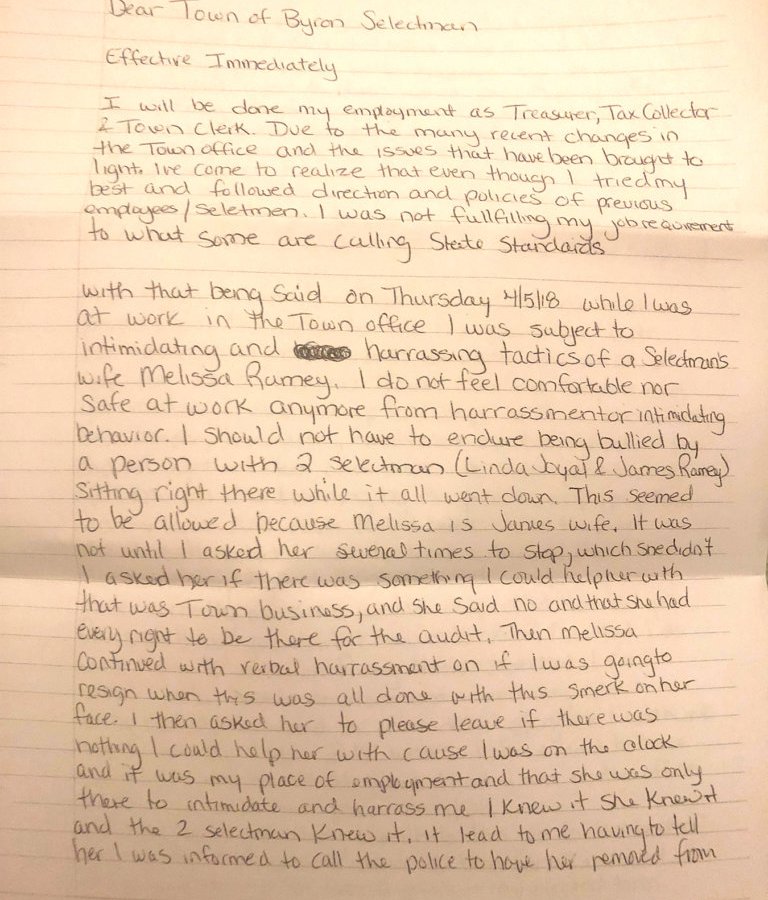 Dear Town of Byron Selectman
Effective Immediately
I will be done my employment as Treasurer, Tax Collector
& Town Clerk. Due to the many recent changes in
the Town office and the issues that have been brought to
light. Ive come to realize that even though I tried my
best and followed direction and policies of previous
employees/seletmen. I was not fullfilling my job requirement
to what some are calling State Standards
with that being said on Thursday 4/5/18 while I was
at work in the Town office I was subject to
intimidating and harrassing tactics of a Selectman's
wife Melissa Ramey. I do not feel comfortable nor
safe at work anymore from harrassment or intimidating
behavior. I should not have to endure being bullied by
a person with 2 selectman (Linda Joyal & James Ramey)
sitting right there while it all went down. This seemed
to be allowed because Melissa is James wife. It was
not until I asked her several times to stop, which she didn't
I asked her if there was something I could help her with
that was Town business, and she said no and that she had
every right to be there for the audit. Then Melissa
continued with verbal harrassment on if I was going to
resign when this was all done with this smerk on her
face. I then asked her to please leave if there was
nothing I could help her with cause I was on the clock
and it was my place of employment and that she was only
there to intimidate and harrass me I knew it she knew it
and the 2 selectman knew it. it lead to me having to tell
her I was informed to call the police to have her removed from